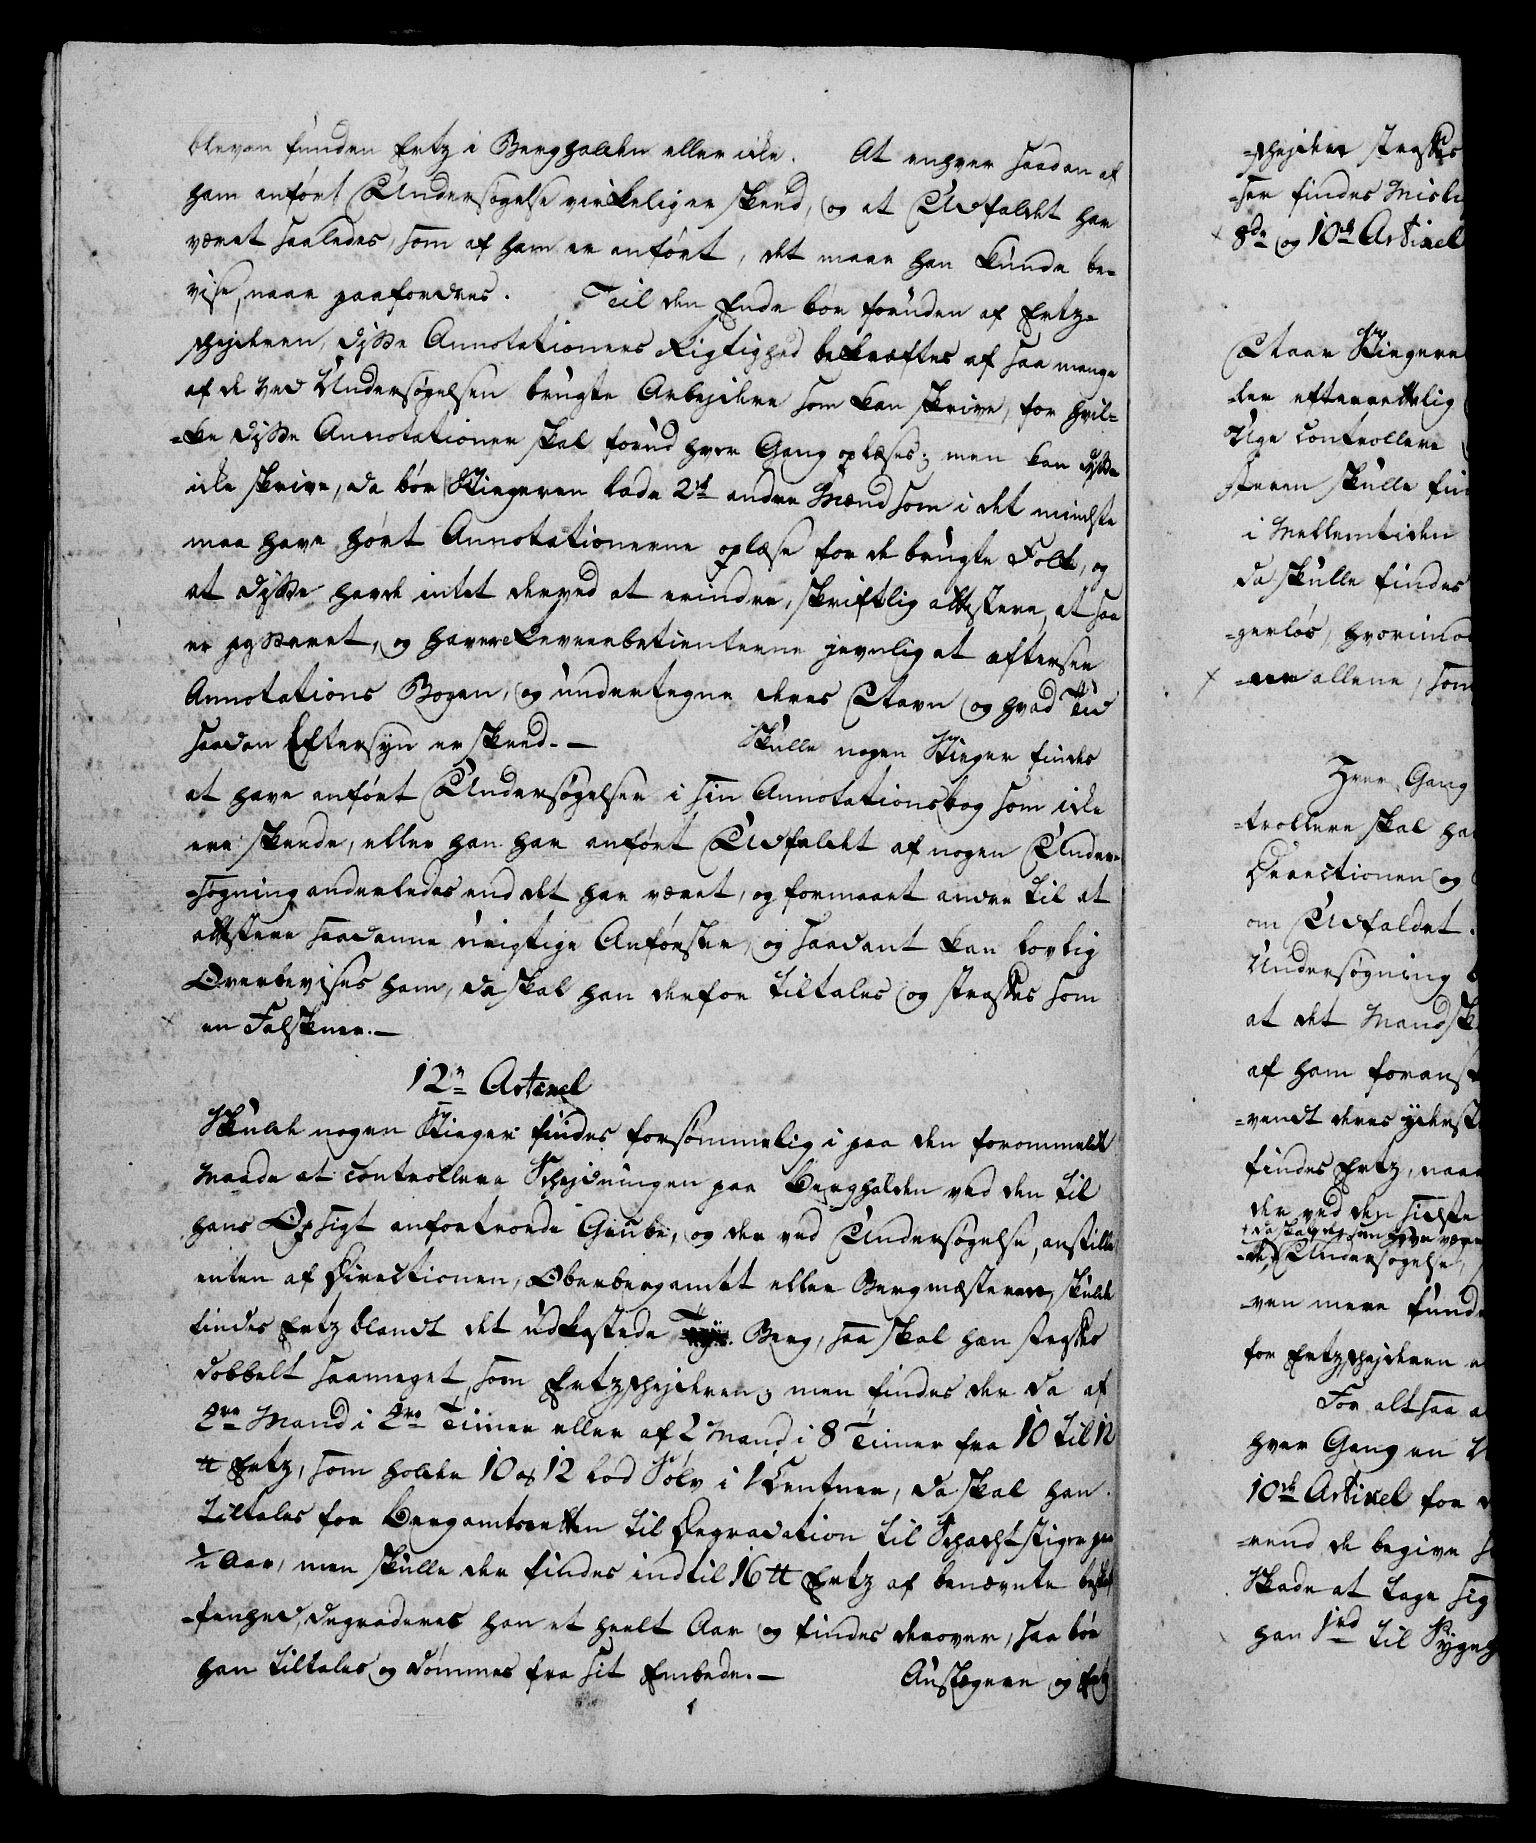 bleven funden Ertz i Berghalden eller icke. At enhver saadan af
ham anført Undersøgelse virkelig er skeed, og at Udfaldet har
været saaledes, som af ham er anført, det maae han kunde be-
vise, naar paafordres. Til den Ende bør foruden af Ertz-
schejderen, disse Annotationers Rigtighed bekræftes af saa mange
af de ved Undersøgelsen brugte Arbejdere som kan skrive, for hvil-
-ke disse Annotationer skal forud hver Gang oplæses; men kan disse
icke skrive, da bør Stigeren lade 2de andre Mænd som i det mindste
maa have hørt Annotationerne oplæse for de brugte Folk, og
at disse havde intet derved at erindre, skriftlig attestere, at saa
er passeret, og haver Leverbetienterne jevnlig at eftersee
Annotations Bogen, og undertegne deres Navn og hvad Tid
saadan Eftersyn er skeed.— Skulle nogen Stiger findes
at have anført Undersøgelser i sin Annotationsbog som icke
ere skeede, eller han har anført Udfaldet af nogen Under-
-søgning anderledes end det har været, og formaaet andre til at
attestere saadanne urigtige Anførsler, og saadant kan lovlig
Overbevises ham, da skal han derfor tiltales og straffes som
en Falskner.—
12te Articel
Skulde nogen Stiger findes forsømmelig i paa den forommeldte
Maade at controllere Schejdningen paa Berghalden ved den til
hans Opsigt anfortroede Grube, og der ved Undersøgelse, anstillet
enten af Directionen, Oberbergamtet eller Bergmesteren, skulde
findes Ertz blandt det udkastede Berg, saa skal han straffes
dobbelt saameget, som Ertzschejderen; men findes der da af
4re Mand i 4re Timer eller af 2 Mand i 8 Timer fra 10 til 12
℔ Ertz, som holde 10 a 12 Lod Sølv i 1 Centner, da skal han
tiltales for Bergamtsretten til Degradation til Schachtstiger paa
½ Aar, men skulle der findes indtil 16 ℔ Ertz af benævnte beskaf-
-fenhed, degraderes han et heelt Aar og findes derover, saa bør
han tiltales og dømmes fra sit Embede.— Anstegnere og Ertz
-schejdere straffes
-ser findes Mislig
8de og 10de Articel
Naar Stigeren
-der efterrettelig
Uge controllere
skulle fin
i Mellemtiden
da skulle findes
-gerløs, hvorimod
allene, som
Hver Gang
-trollere skal ha
Directionen og
om Udfaldet.
Undersøgning
at det Mandsk
af ham foranst
-vendt deres yderst
findes Ertz, naar
der ved den sidste
Undersøgelse,
-ven mere funde
for Ertzschejderen
For alt saa
hver Gang en U
10de Articel for
-rend de begive s
Skade at tage sig
han til Sygeh